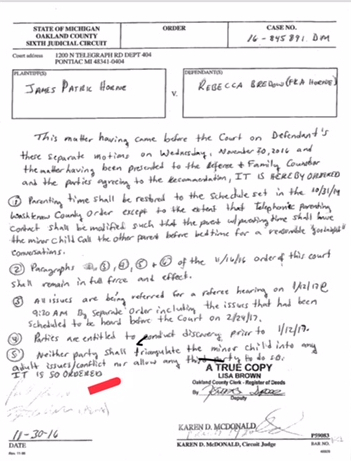 STATE OF MICHIGAN
OAKLAND COUNTY
SIXTH JUDICIAL CIRCUIT
ORDER
CASE NO.
16-845891 DM
Court address
1200 N TELEGRAPH RD DEPT 404
PONTIAC MI 48341-0404
PLAINTIFF(S)
JAMES PATRIC HORNE
V.
DEFENDANT(S)
REBECCA BREDOW (FKA HORNE)
This matter having came before the Court on Defendant's
these separate motions on Wednesday, November 30, 2016 and
the matter having been presented to the Referee + Family Counselor
and the parties agreeing to the Recommendation, IT IS HEREBY ORDERED
① Parenting time shall be restored to the Schedule set in the 10/31/14
Washtenaw County Order except to the extent that Telephonic parenting
contact shall be modified such that the parent w/parenting time shall have
the minor child call the other parent before bedtime for a reasonable "goodnight"
conversations.
② Paragraphs ③, ⑤ + ⑥ of the 11/16/16 order of this court
shall remain in full force and effect.
③ All issues are being referred for a referee hearing on 1/12/17 @
9:30 AM By Separate Order including the issues that had been
scheduled to be heard before the Court on 2/24/17.
④ Parties are entitled to conduct discovery prior to 1/12/17.
⑤ Neither party shall triangulate the minor child into any
adult issues/conflict nor allow any third party to do so.
IT IS SO ORDERED
A TRUE COPY
LISA BROWN
Oakland County Clerk - Register of Deeds
By
Deputy
11-30-16
DATE
KAREN D. MCDONALD,
P59083
KAREN D. MCDONALD, Circuit Judge
BAR NO.